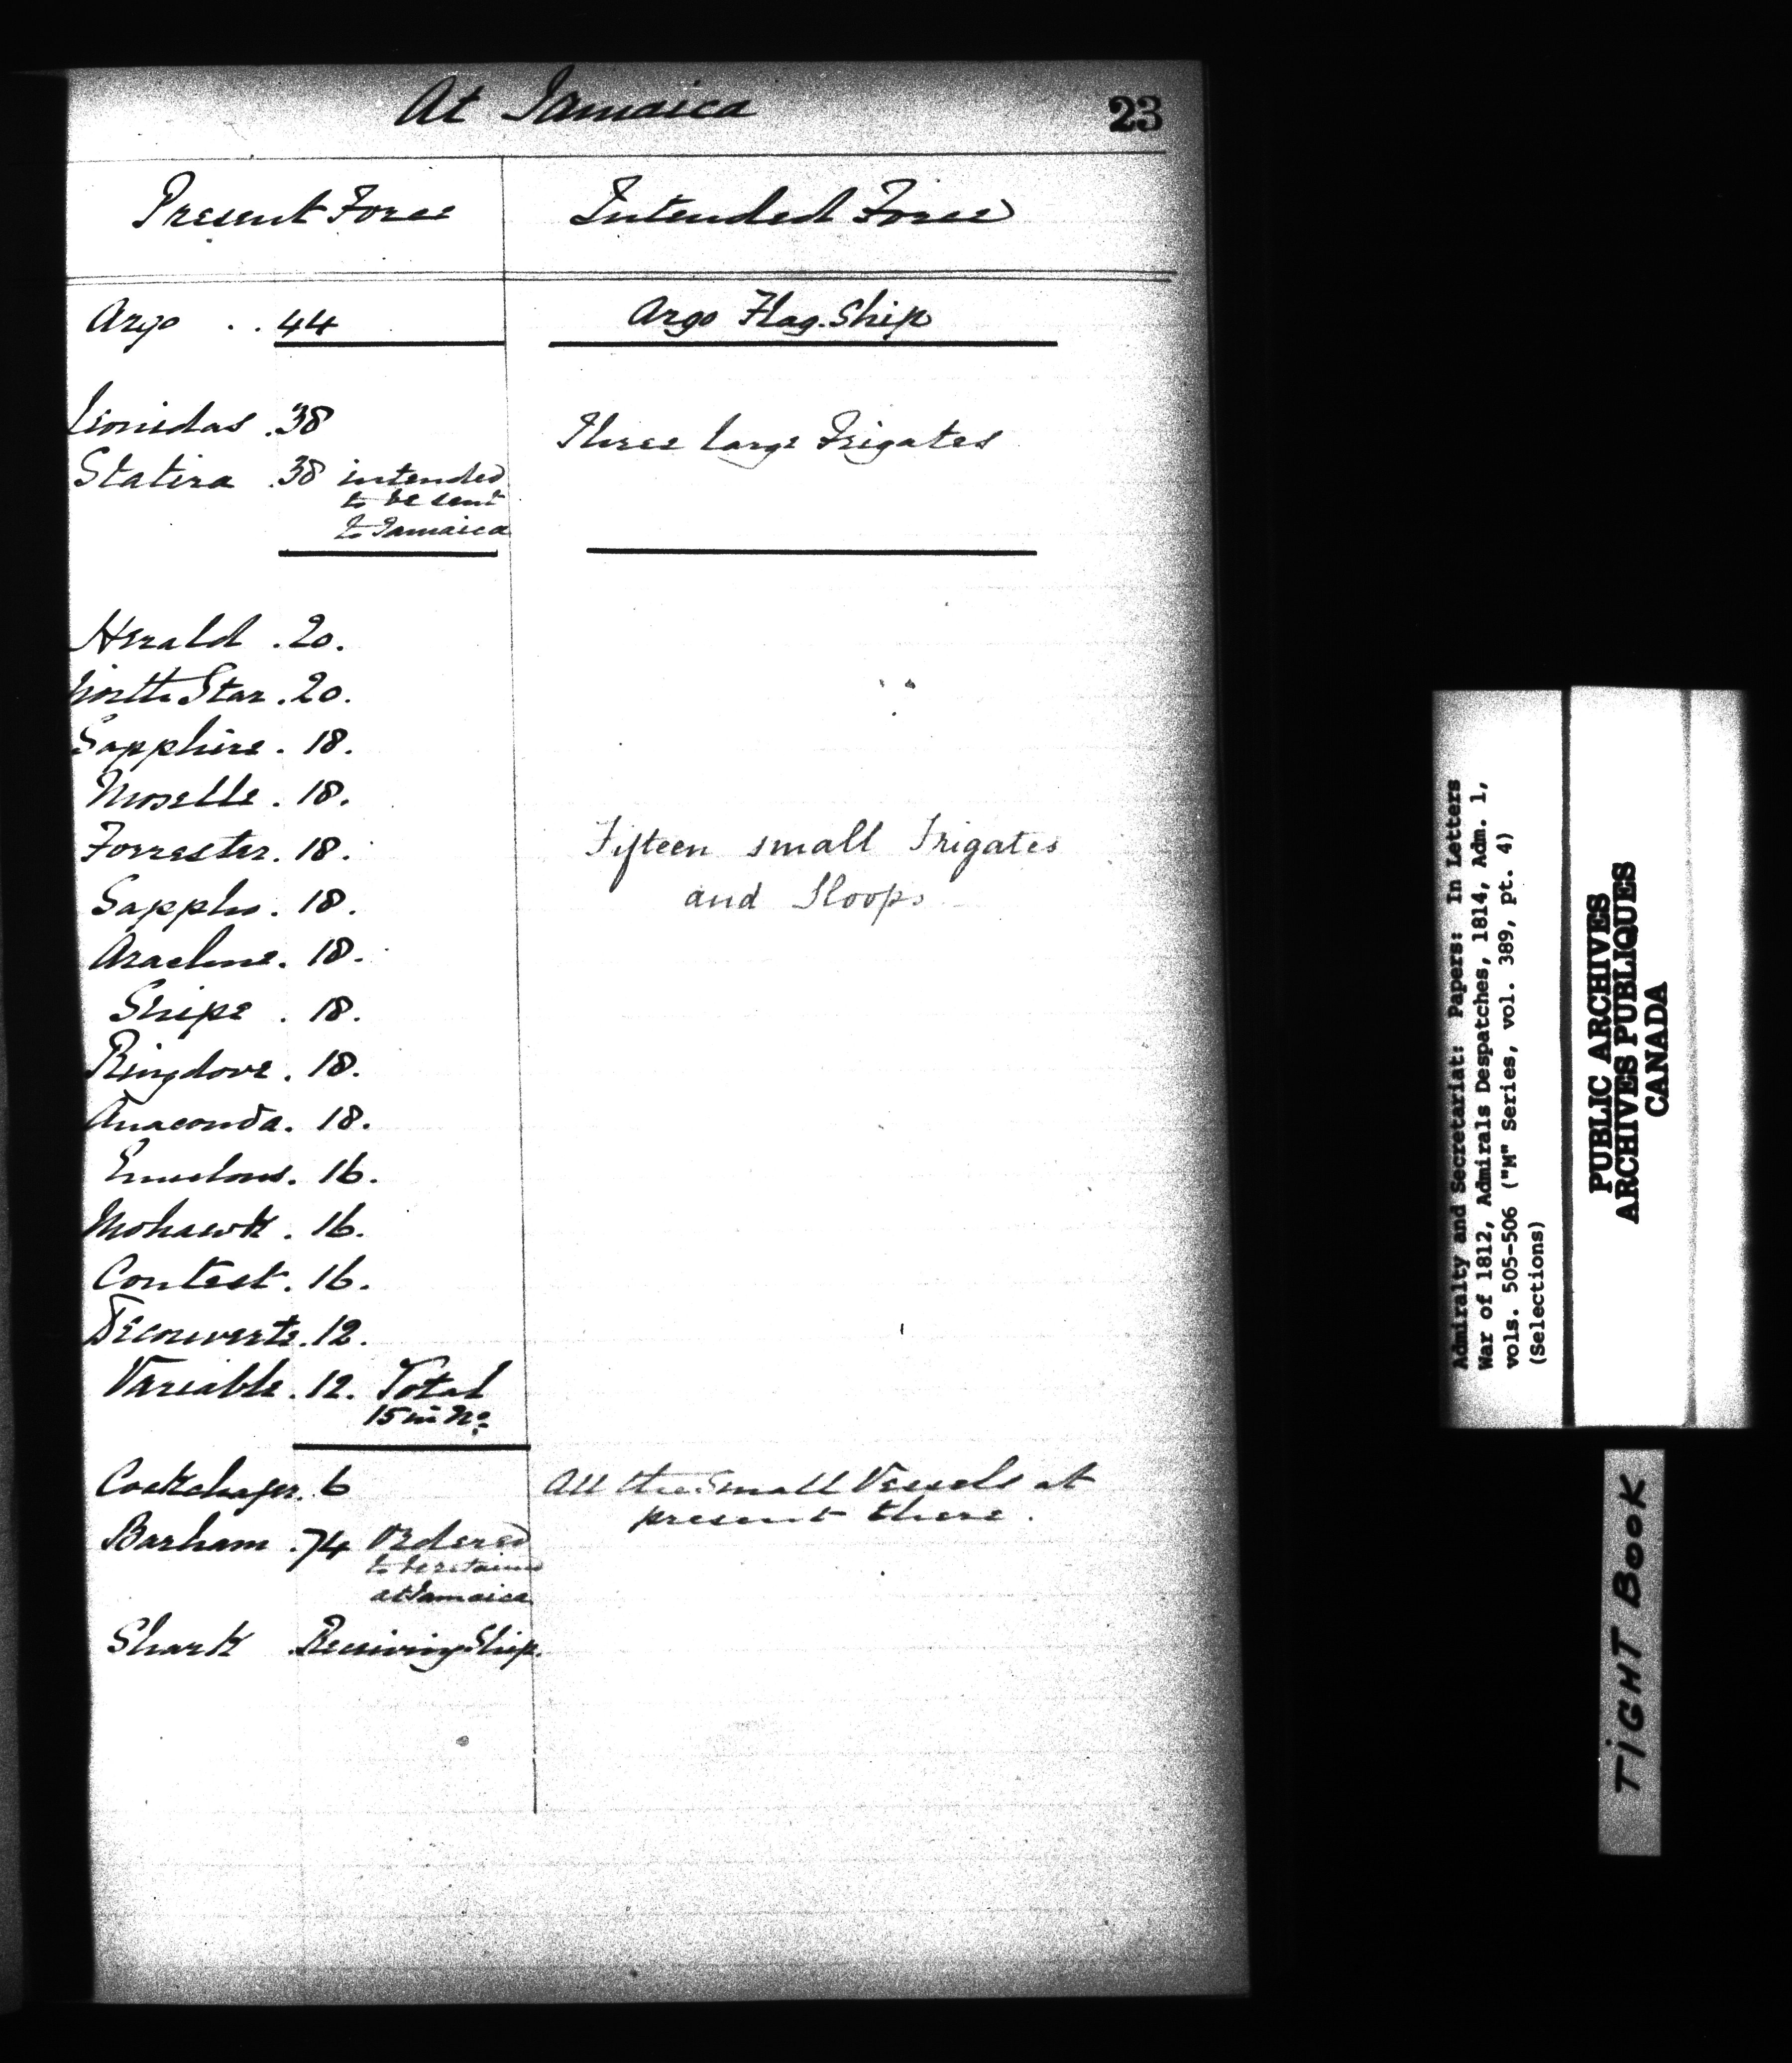 At Jamaica
23
Present Force
Intended Force
Argo . . 44
Argo Flag. Ship
Leonidas . 38
Three large Frigates
Statira . 38 intended
to be sent
to Jamaica
Herald . 20.
North Star . 20.
Sapphire . 18.
Moselle . 18.
Forrester . 18.
Fifteen small Frigates
and Sloops
Sappho . 18.
Arachne . 18.
Snipe . 18.
Ringdove . 18.
Anaconda . 18.
Emulous . 16.
Mohawk . 16.
Contest . 16.
Decouverte . 12.
Variable . 12. Total
15 in No.
Cockchafer . 6
All the Small Vessels at
present there .
Barham . 74 Ordered
to be retained
at Jamaica
Shark . Receiving Ship.
Admiralty and Secretariat: Papers: In Letters
War of 1812, Admirals Despatches, 1814, Adm. 1,
vols. 505-506 ("M" Series, vol. 389, pt. 4)
(Selections)
PUBLIC ARCHIVES
ARCHIVES PUBLIQUES
CANADA
TIGHT BOOK